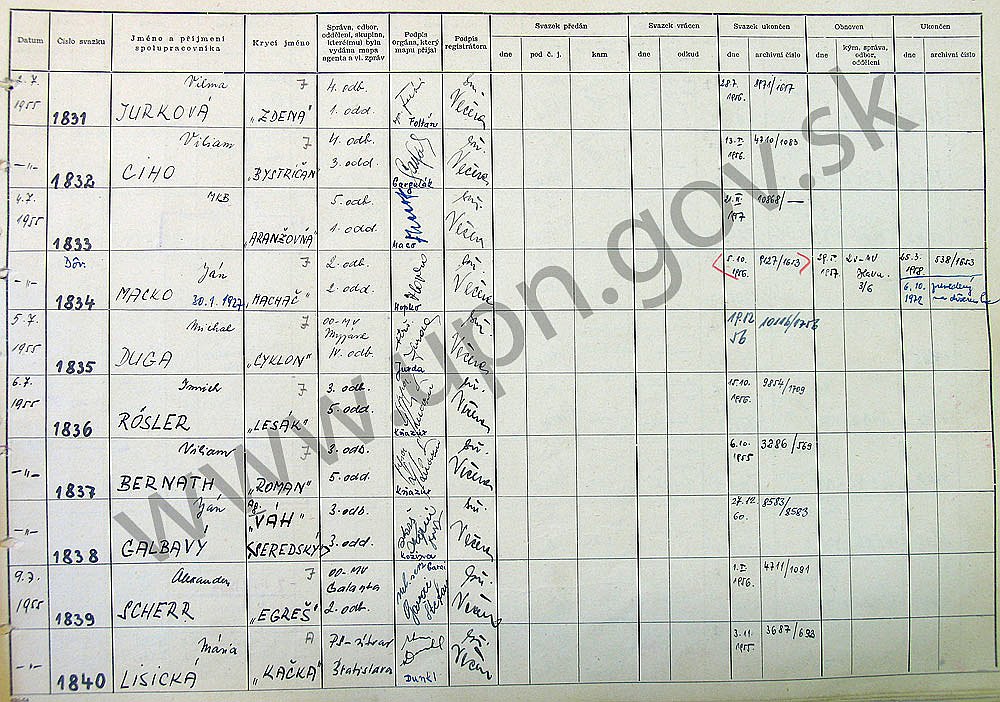 Datum
Číslo svazku
Jméno a příjmení spolupracovníka
Krycí jméno
Správa, odbor, oddělení, skupina, kterému(i) byla vydána mapa agenta a vl. zpráv
Podpis orgána, který mapu přijal
Podpis registrátora
Svazek předán
dne
pod č. j.
kam
Svazek vrácen
dne
odkud
Svazek ukončen
dne
archivní číslo
Obnoven
dne
kým, správa, odbor, oddělení
Ukončen
dne
archivní číslo
2.7. Vilma J 4. odb. 28.7.
1955 1831 JURKOVÁ „ZDENA" 1. odd. Foltán Večera 1956.
Viliam J 4. odb. 4710/1083
-"- 1832 CIHO „BYSTRIČAN" 3. odd. Gargulák Večera 1956.
4.7. MKB 5. odb. 10868/—
1955 1833 „ARANŽOVNÁ" 1. odd. Maco Večera 1957
Ján J 2. odb. 5.10. 8127/1653 25.3. 538/1653
-"- 1834 MACKO 30.1.1927 „MACHÁČ" 2. odd. Hopko Večera 1956. 1957 3/6 6.10. 1972
5.7. Michal J OO-MV Myjava 19.12
1955 1835 DUGA „CYKLON" IV. odb. Večera 56
6.7. Imrich J 3. odb. 15.10. 9854/1709
1955 1836 RÖSLER „LESÁK" 5. odd. Večera 1956.
Viliam J 3. odb. 6.10. 3286/569
-"- 1837 BERNATH „ROMAN" 5. odd. Večera 1955
Ján „VÁH" 3. odb. 27.12. 8583/8583
-"- 1838 GALBAVÝ SEREDSKÝ 3. odd. Večera 60.
9.7. Alexander J OO-MV Galanta 4711/1091
1955 1839 SCHERR „EGREŠ" 2. odb. Večera 1956.
Mária A 3.11.
-"- 1840 LISICKÁ „KAČKA" Bratislava Dunkl Večera 1955
www.upn.gov.sk